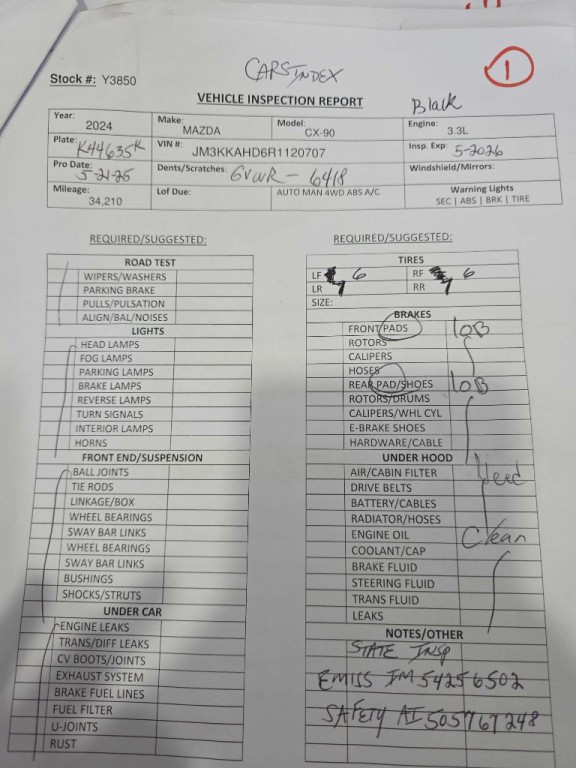 CARSINDEX
1
Stock #: Y3850
VEHICLE INSPECTION REPORT
Black
Year: 2024 Make: MAZDA Model: CX-90 Engine: 3.3L
Plate: K44635K VIN #: JM3KKAHD6R1120707 Insp. Exp: 5-2026
Pro Date: 5-21-25 Dents/Scratches: GVWR - 6418 Windshield/Mirrors:
Mileage: 34,210 Lof Due: AUTO MAN 4WD ABS A/C Warning Lights
SEC | ABS | BRK | TIRE
REQUIRED/SUGGESTED:
ROAD TEST
WIPERS/WASHERS
PARKING BRAKE
PULLS/PULSATION
ALIGN/BAL/NOISES
LIGHTS
HEAD LAMPS
FOG LAMPS
PARKING LAMPS
BRAKE LAMPS
REVERSE LAMPS
TURN SIGNALS
INTERIOR LAMPS
HORNS
FRONT END/SUSPENSION
BALL JOINTS
TIE RODS
LINKAGE/BOX
WHEEL BEARINGS
SWAY BAR LINKS
WHEEL BEARINGS
SWAY BAR LINKS
BUSHINGS
SHOCKS/STRUTS
UNDER CAR
ENGINE LEAKS
TRANS/DIFF LEAKS
CV BOOTS/JOINTS
EXHAUST SYSTEM
BRAKE FUEL LINES
FUEL FILTER
U-JOINTS
RUST
REQUIRED/SUGGESTED:
TIRES
LF 6 RF 6
LR 7 RR 7
SIZE:
BRAKES
FRONT PADS 10B
ROTORS
CALIPERS
HOSES
REAR PAD/SHOES 10B
ROTORS/DRUMS
CALIPERS/WHL CYL
E-BRAKE SHOES
HARDWARE/CABLE
UNDER HOOD
AIR/CABIN FILTER Need
DRIVE BELTS
BATTERY/CABLES
RADIATOR/HOSES
ENGINE OIL Clean
COOLANT/CAP
BRAKE FLUID
STEERING FLUID
TRANS FLUID
LEAKS
NOTES/OTHER
STATE INSP
EMISS IM 54256502
SAFETY AI 505767248